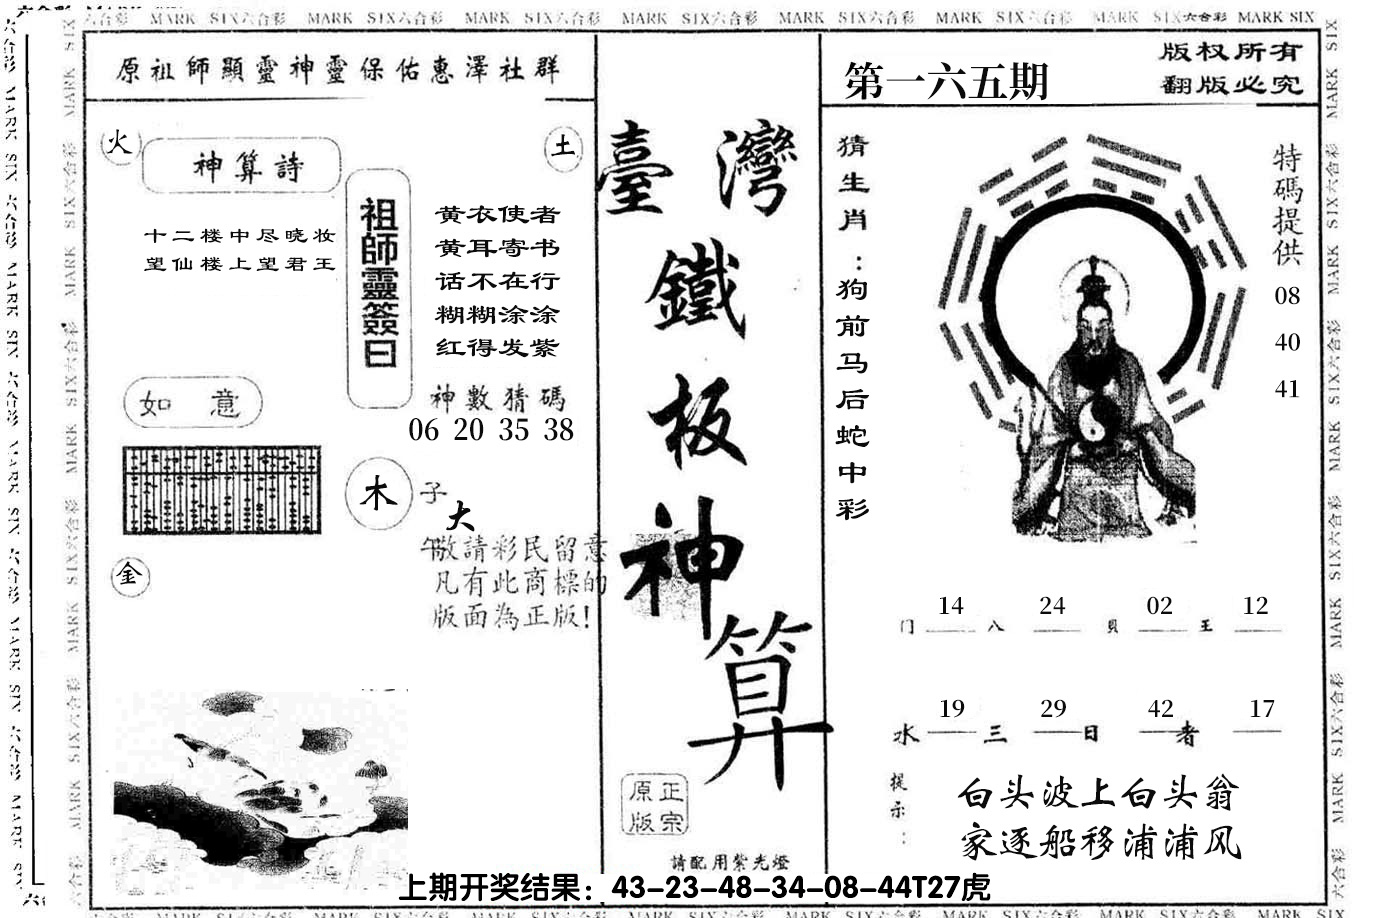 六合彩 MARK SIX六合彩 MARK SIX六合彩 MARK SIX六合彩 MARK SIX六合彩 MARK SIX六合彩 MARK SIX六合彩 MARK SIX六合彩 MARK SIX
原祖師顯靈神靈保佑惠澤社群
火
土
神算詩
十二楼中尽晓妆
望仙楼上望君王
祖師靈簽曰
黄衣使者
黄耳寄书
话不在行
糊糊涂涂
红得发紫
如意
神數猜碼
06 20 35 38
木
子
大
午
金
敬請彩民留意
凡有此商標的
版面為正版!
臺灣
鐵
板
神
算
正宗
原版
請配用紫光燈
第一六五期
版权所有
翻版必究
猜生肖:狗前马后蛇中彩
特碼提供
08
40
41
14 24 02 12
门 八 貝 王
19 29 42 17
水 三 日 者
提示:
白头波上白头翁
家逐船移浦浦风
上期开奖结果：43-23-48-34-08-44T27虎